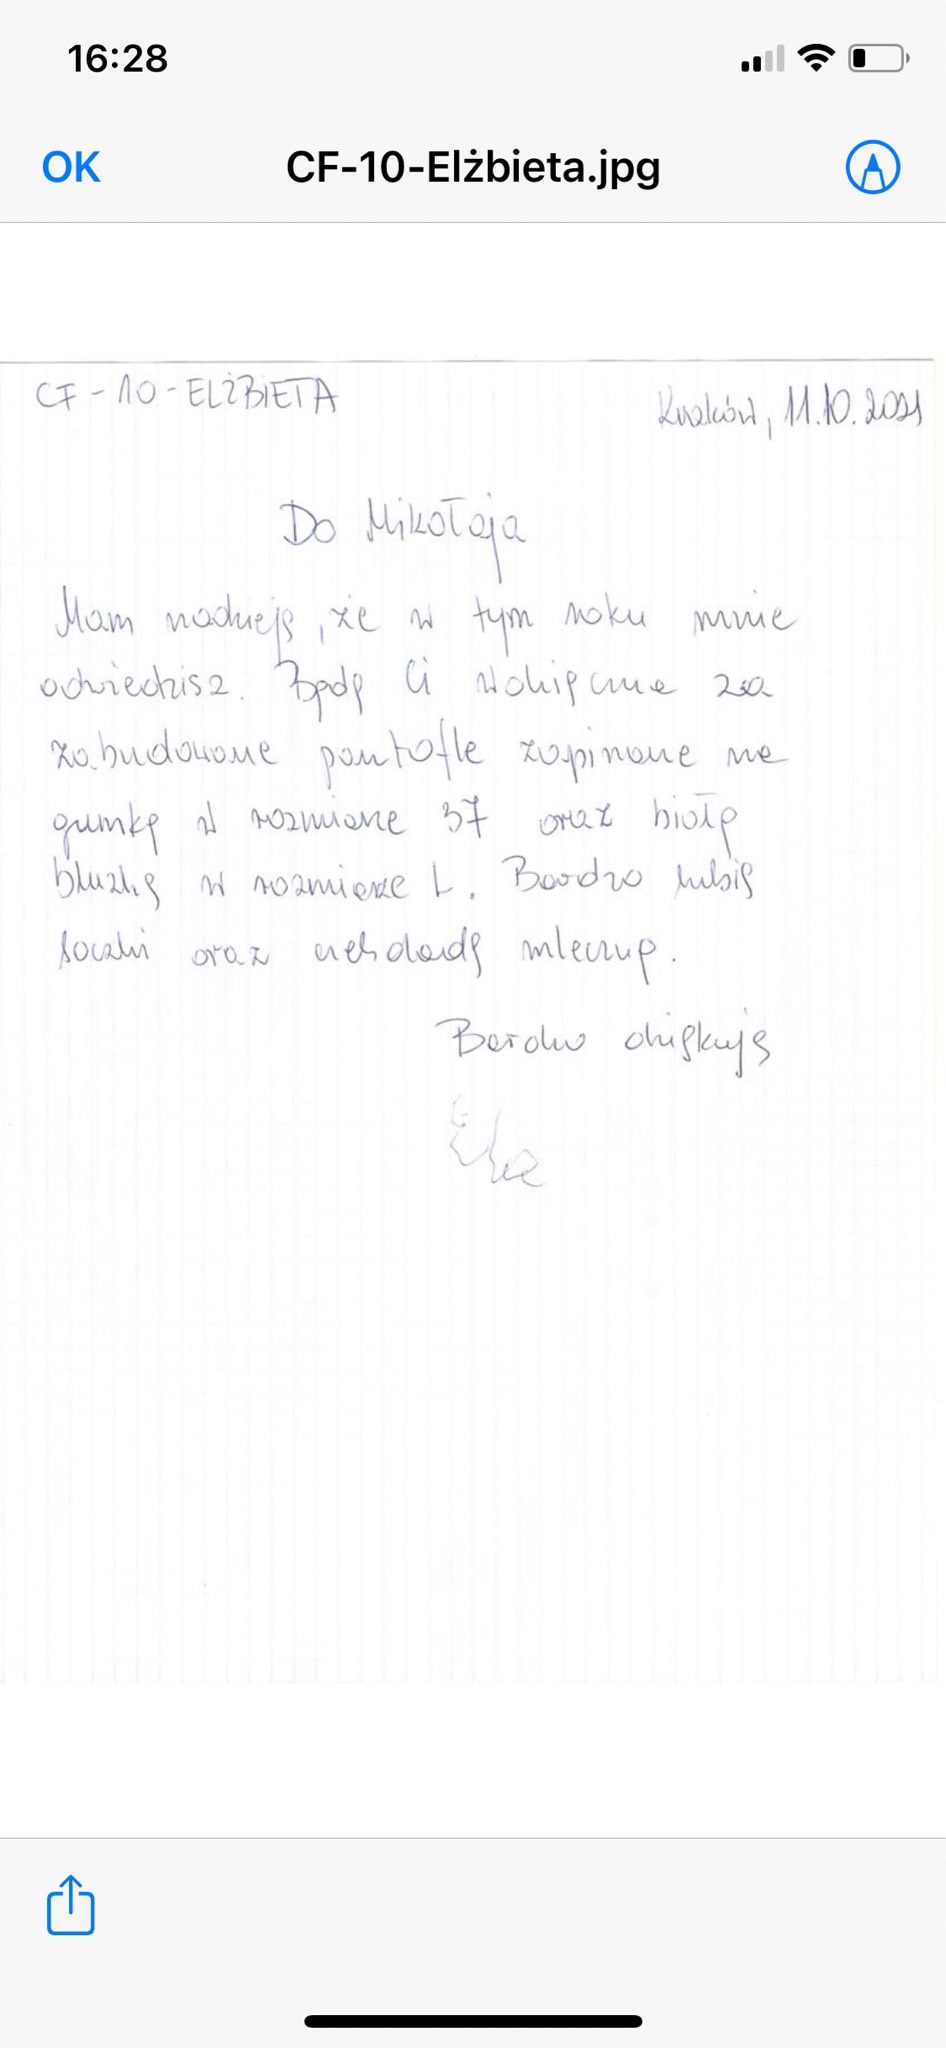 16:28
OK CF-10-Elżbieta.jpg
CF-10-ELŻBIETA
Kraków, 11.10.2021
Do Mikołaja
Mam nadzieję, że w tym roku mnie
odwiedzisz. Będę Ci wdzięczna za
zabudowane pantofle zapinane na
gumkę w rozmiarze 37 oraz białą
bluzkę w rozmiarze L. Bardzo lubię
soczki oraz czekoladę mleczną.
Bardzo dziękuję
Ela